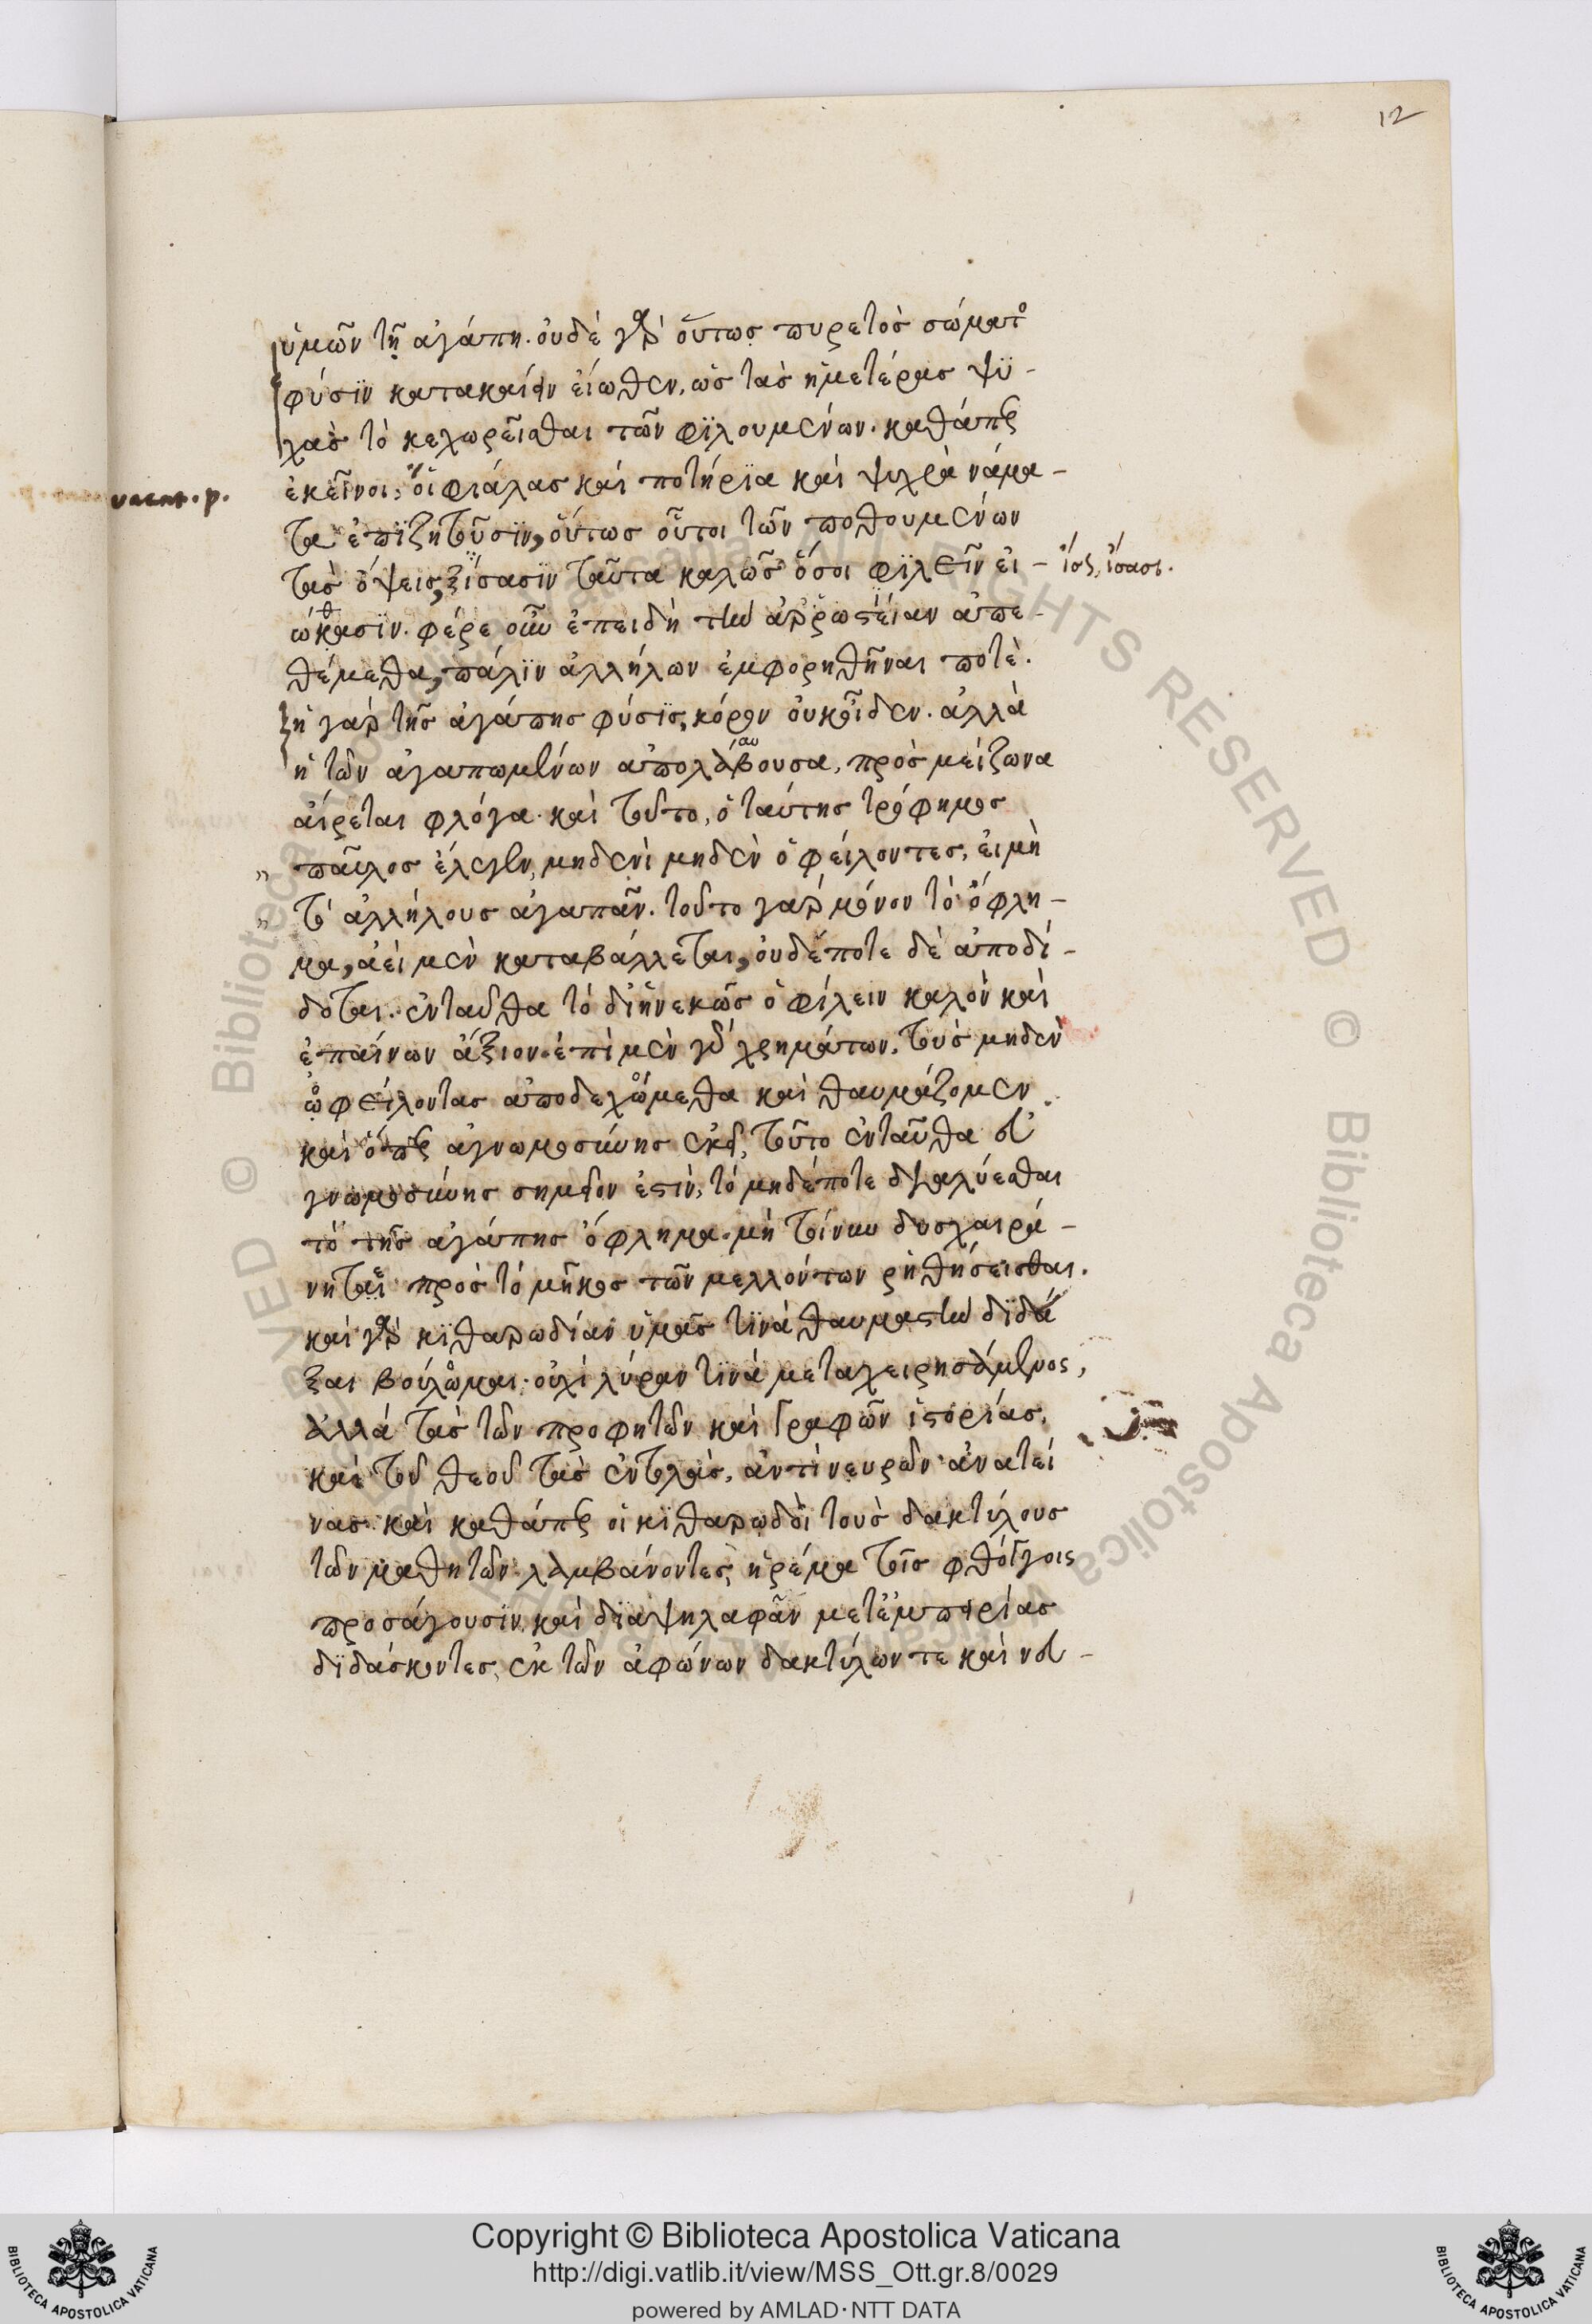 12
ὑμῶν τῇ ἀγάπη. οὐδὲ γὰρ οὕτως πυρετὸς σώματος
φύσϊν κατακαίειν εἴωθεν, ὡς τὰς ἡμετέρας ψϋ-
χὰς τὸ κεχωρεῖσθαι τῶν φϊλουμένων. καθάπερ
ἐκεῖνοι, οἳ φιάλας καὶ ποτήρϊα καὶ ψυχρὰ νάμα-
τα ἐπϊζητοῦσϊν, οὕτως οὗτοι τῶν ποθουμένων
τὰς ὄψεις, ἴσασϊν ταῦτα καλῶς ὅσοι φϊλεῖν εἰ-
ἴσασι.
ώθασϊν. φέρε οὖν ἐπειδὴ τὴν ἀρρωστείαν ἀπε-
θέμεθα, πάλϊν ἀλλήλων ἐμφορηθῆναι ποτὲ.
ἡ γὰρ τῆς ἀγάπης φύσϊς, κόρον οὐκ οἶδεν. ἀλλὰ
ἡ τῶν ἀγαπωμένων ἀπολάβουσα, πρὸς μείζωνα
αἴρεται φλόγα. καὶ τοῦτο, ὁ ταύτης τρόφημος
παῦλος ἔλεγεν, μηδενὶ μηδὲν ὀφείλοντες, εἰ μὴ
τὸ ἀλλήλους ἀγαπᾶν. τοῦτο γὰρ μόνον τὸ ὄφλη-
μα, ἀεὶ μὲν καταβάλλεται, οὐδέποτε δὲ ἀποδί-
δοται. ἐνταῦθα τὸ διηνεκῶς ὀφίλειν καλὸν καὶ
ἐπαίνων ἄξιον. ἐπὶ μὲν γὰρ χρημάτων, τοὺς μηδὲν
ὠφείλοντας ἀποδεχώμεθα καὶ θαυμάζομεν.
καὶ ὅπερ ἀγνωμοσύνης ἐκεῖ, τοῦτο ἐνταῦθα εὐ
γνωμοσύνης σημεῖον ἐστὶν, τὸ μηδέποτε διαλύεσθαι
τὸ τῆς ἀγάπης ὄφλημα. μὴ τοίνυν δυσχαιρά-
νηται πρὸς τὸ μῆκος τῶν μελλόντων ῥηθήσεισθαι.
καὶ γὰρ κϊθαρωδίαν ὑμᾶς τϊνὰ θαυμαστὴν διδά
ξαι βούλωμαι. οὐχὶ λύραν τϊνὰ μεταχειρησάμενος,
ἀλλὰ τὰς τῶν προφητῶν καὶ γραφῶν ἱστορίας,
καὶ τοῦ θεοῦ τὰς ἐντολὰς, ἀντὶ νευρῶν ἀνατεί
νας. καὶ καθάπερ οἱ κϊθαρωδοὶ τοὺς δακτύλους
τῶν μαθητῶν λαμβάνοντες, ἠρέμα τοῖς φθόγγοις
προσάγουσϊν, καὶ διαψηλαφᾶν μετ' ἐμπειρίας
δϊδάσκοντες, ἐκ τῶν ἀφώνων δακτύλων τε καὶ νευ-
Copyright © Biblioteca Apostolica Vaticana
http://digi.vatlib.it/view/MSS_Ott.gr.8/0029
powered by AMLAD·NTT DATA